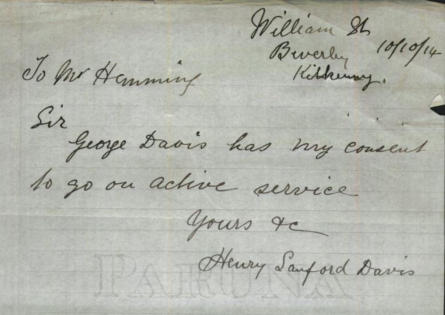 William St
Beverley
10/10/14
Kilkenny.
To Mr Hemming
Sir
George Davis has my consent
to go on active service
Yours &c
Henry Sanford Davis
PARUNA